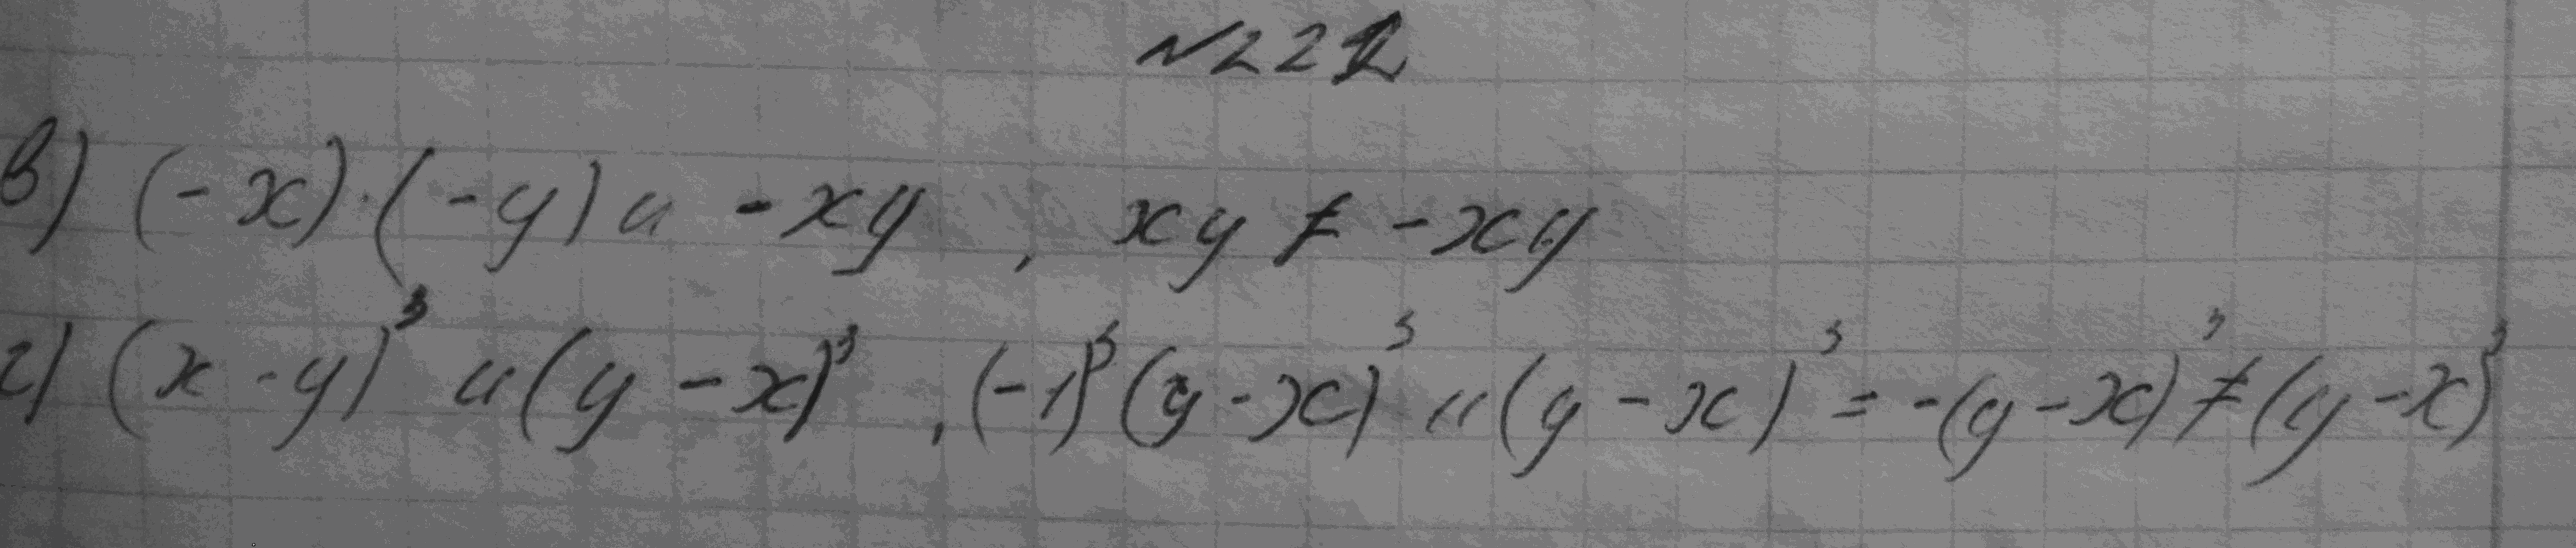 №222
в) (-x)·(-y) и -xy, xy ≠ -xy
г) (x-y)³ и (y-x)³, (-1)³(y-x)³ и (y-x)³ = -(y-x)³ ≠ (y-x)³